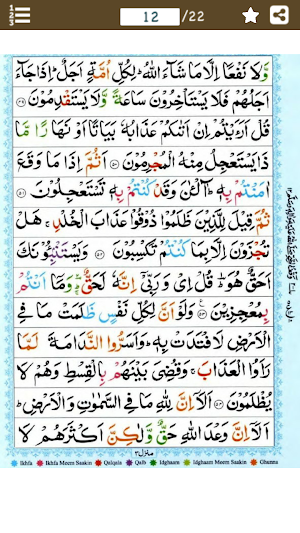 12 /22
وَّلَا نَفْعًا اِلَّا مَا شَآءَ اللّٰهُ ؕ لِكُلِّ اُمَّةٍ اَجَلٌ ؕ اِذَا جَآءَ
اَجَلُهُمْ فَلَا يَسْتَاْخِرُوْنَ سَاعَةً وَّلَا يَسْتَقْدِمُوْنَ ﴿۴۹﴾
قُلْ اَرَءَيْتُمْ اِنْ اَتٰىكُمْ عَذَابُهٗ بَيَاتًا اَوْ نَهَارًا مَّا
ذَا يَسْتَعْجِلُ مِنْهُ الْمُجْرِمُوْنَ ﴿۵۰﴾ اَثُمَّ اِذَا مَا وَقَعَ
اٰمَنْتُمْ بِهٖ ؕ آٰلْئٰنَ وَقَدْ كُنْتُمْ بِهٖ تَسْتَعْجِلُوْنَ ﴿۵۱﴾
ثُمَّ قِيْلَ لِلَّذِيْنَ ظَلَمُوْا ذُوْقُوْا عَذَابَ الْخُلْدِ ۚ هَلْ
تُجْزَوْنَ اِلَّا بِمَا كُنْتُمْ تَكْسِبُوْنَ ﴿۵۲﴾ وَيَسْتَنْۢبِـُٔوْنَكَ
اَحَقٌّ هُوَ ؕ قُلْ اِيْ وَرَبِّيْۤ اِنَّهٗ لَحَقٌّ ؕ وَّمَاۤ اَنْتُمْ
بِمُعْجِزِيْنَ ﴿۵۳﴾ وَلَوْ اَنَّ لِكُلِّ نَفْسٍ ظَلَمَتْ مَا فِي
الْاَرْضِ لَافْتَدَتْ بِهٖ ؕ وَاَسَرُّوا النَّدَامَةَ لَمَّا
رَاَوُا الْعَذَابَ ۚ وَقُضِيَ بَيْنَهُمْ بِالْقِسْطِ وَهُمْ لَا
يُظْلَمُوْنَ ﴿۵۴﴾ اَلَاۤ اِنَّ لِلّٰهِ مَا فِي السَّمٰوٰتِ وَالْاَرْضِ ؕ
اَلَاۤ اِنَّ وَعْدَ اللّٰهِ حَقٌّ وَّلٰكِنَّ اَكْثَرَهُمْ لَا
منزل ۳
Ikhfa Ikhfa Meem Saakin Qalqala Qalb Idghaam Idghaam Meem Saakin Ghunna